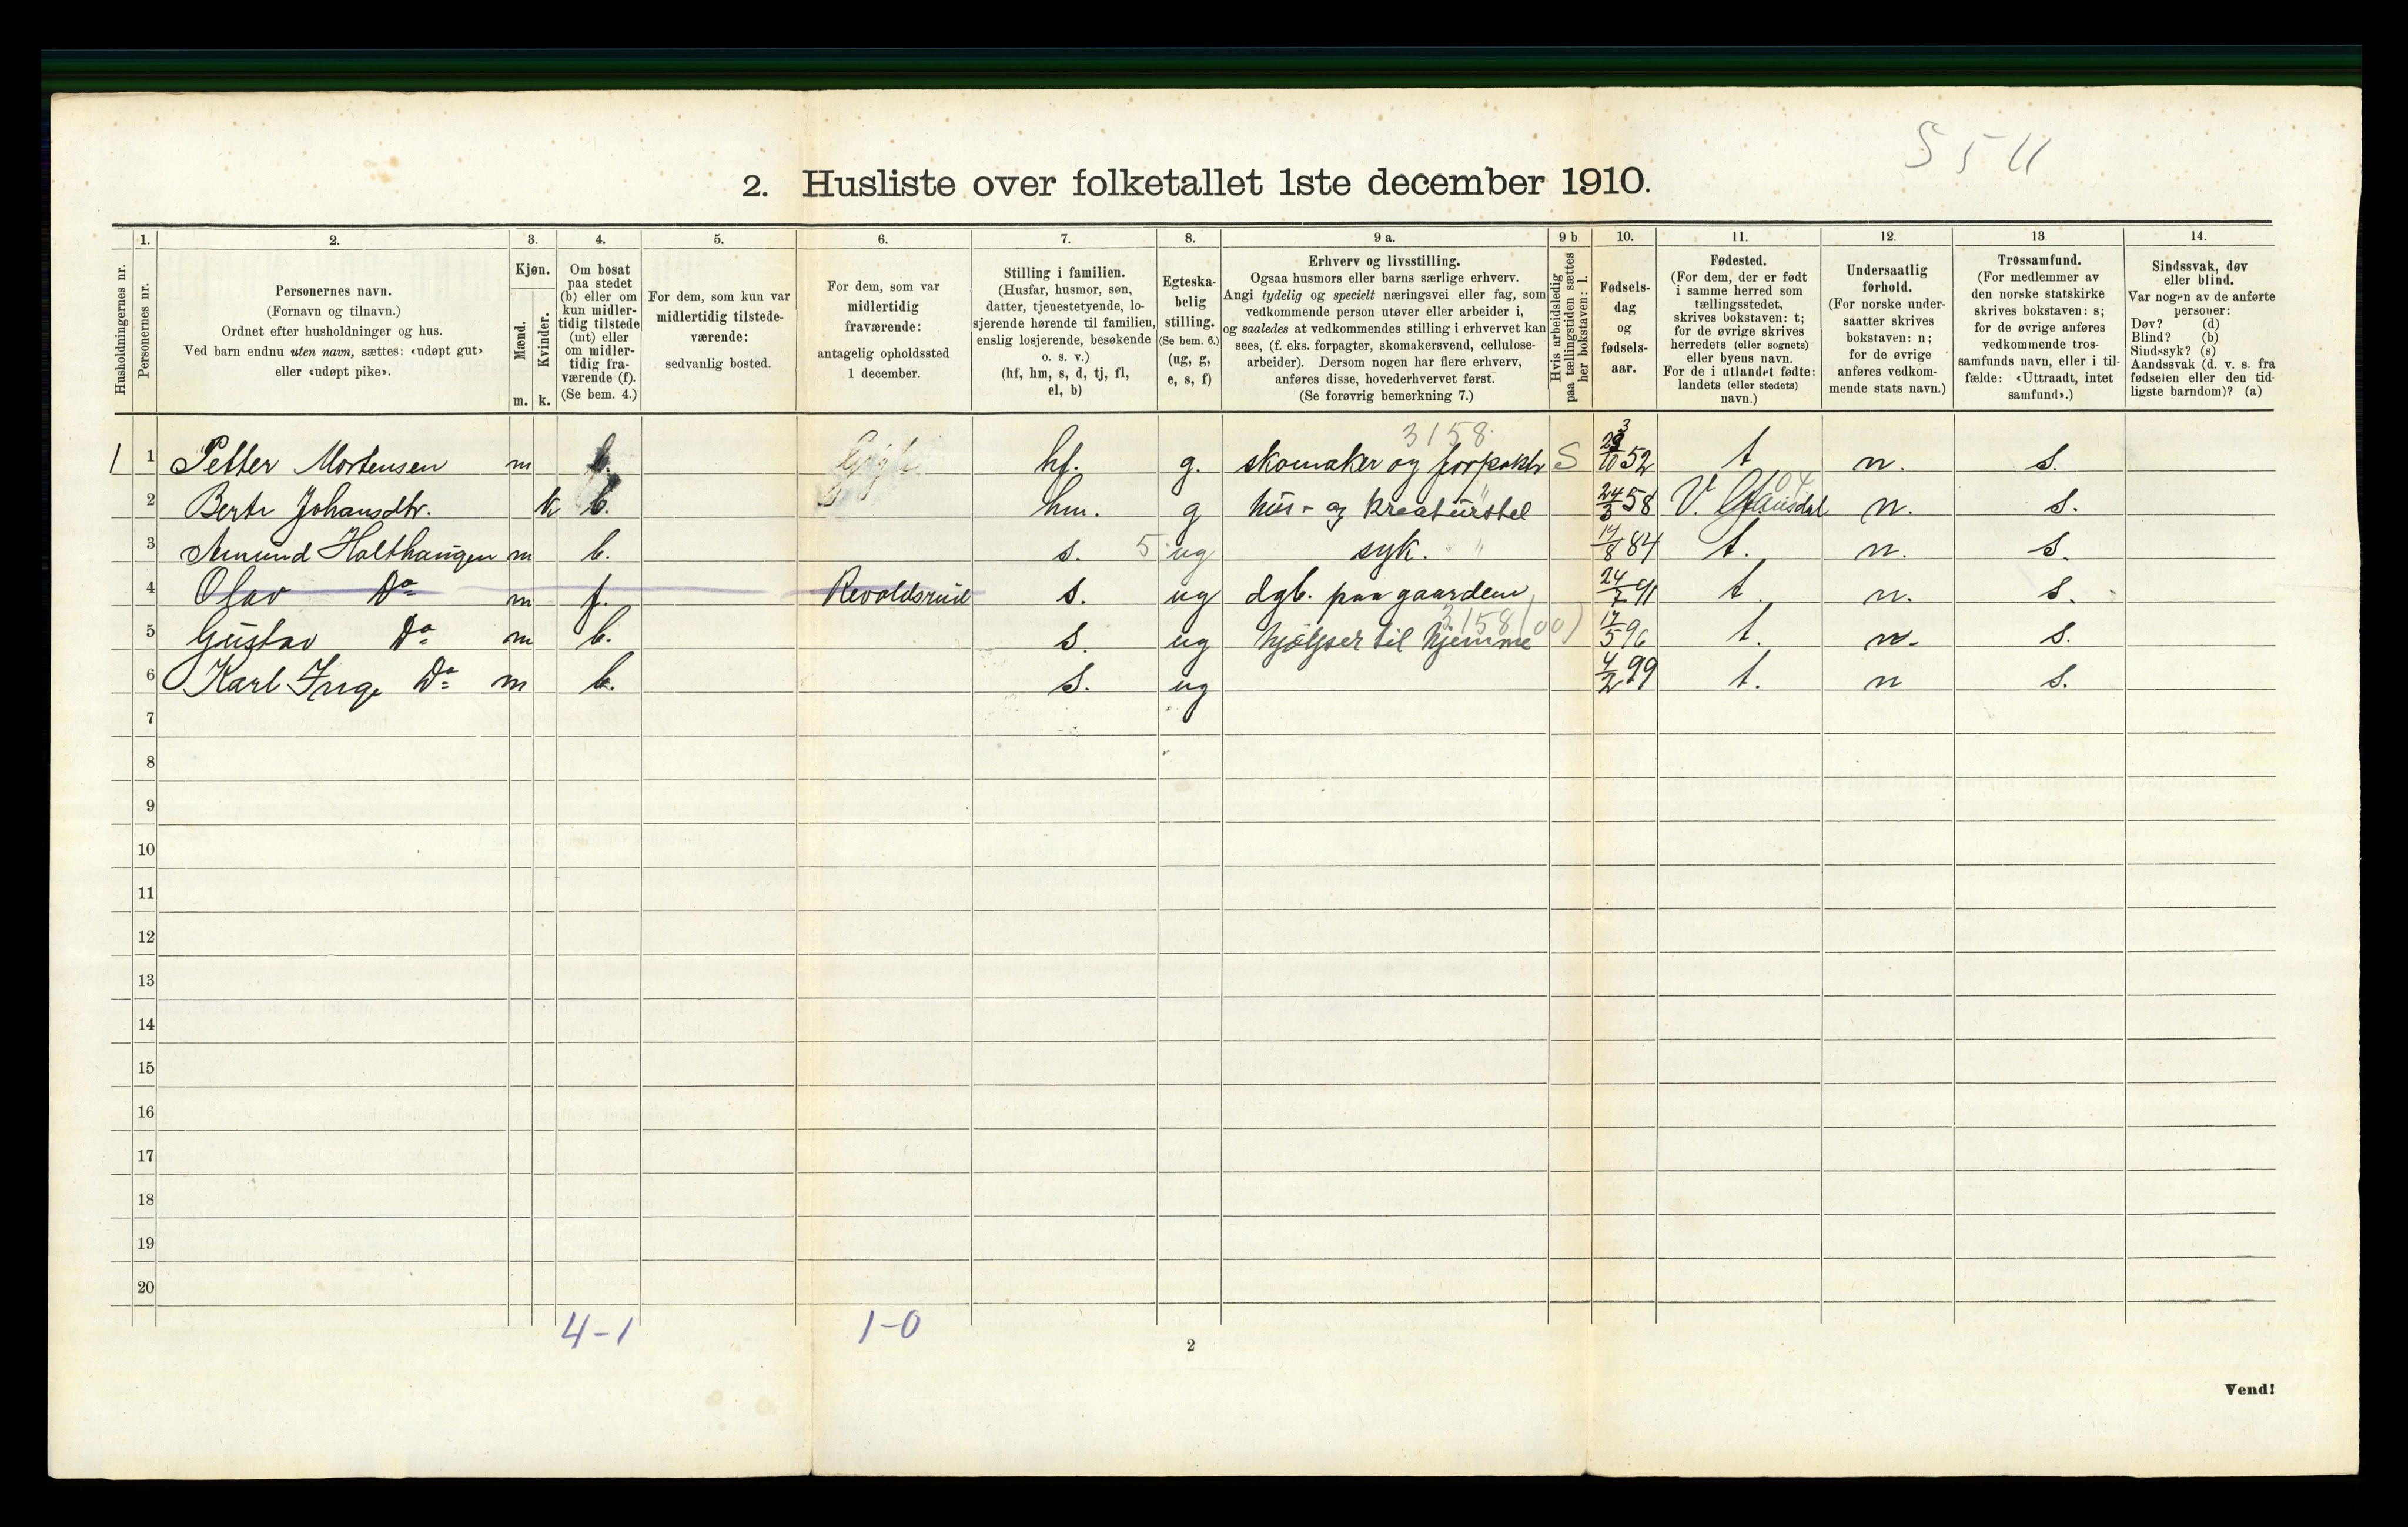 S 5 11
2. Husliste over folketallet 1ste december 1910.
1. 2. 3. 4. 5. 6. 7. 8. 9 a. 9 b 10. 11. 12. 13 14.
Husholdningernes nr.
Personernes nr.
Personernes navn.
(Fornavn og tilnavn.)
Ordnet efter husholdninger og hus.
Ved barn endnu uten navn, sættes: «udøpt gut»
eller «udøpt pike».
Kjøn.
Mænd.
Kvinder.
m. k.
Om bosat
paa stedet
(b) eller om
kun midler-
tidig tilstede
(mt) eller
om midler-
tidig fra-
værende (f).
(Se bem. 4.)
For dem, som kun var
midlertidig tilstede-
værende:
sedvanlig bosted.
For dem, som var
midlertidig
fraværende:
antagelig opholdssted
1 december.
Stilling i familien.
(Husfar, husmor, søn,
datter, tjenestetyende, lo-
sjerende hørende til familien,
enslig losjerende, besøkende
o. s. v.)
(hf, hm, s, d, tj, fl,
el, b)
Egteska-
belig
stilling.
(Se bem. 6.)
(ug, g,
e, s, f)
Erhverv og livsstilling.
Ogsaa husmors eller barns særlige erhverv.
Angi tydelig og specielt næringsvei eller fag, som
vedkommende person utøver eller arbeider i,
og saaledes at vedkommendes stilling i erhvervet kan
sees, (f. eks. forpagter, skomakersvend, cellulose-
arbeider). Dersom nogen har flere erhverv,
anføres disse, hovederhvervet først.
(Se forøvrig bemerkning 7.)
Hvis arbeidsledig
paa tællingstiden sættes
her bokstaven: l.
Fødsels-
dag
og
fødsels-
aar.
Fødested.
(For dem, der er født
i samme herred som
tællingsstedet,
skrives bokstaven: t;
for de øvrige skrives
herredets (eller sognets)
eller byens navn.
For de i utlandet fødte:
landets (eller stedets)
navn.)
Undersaatlig
forhold.
(For norske under-
saatter skrives
bokstaven: n;
for de øvrige
anføres vedkom-
mende stats navn.)
Trossamfund.
(For medlemmer av
den norske statskirke
skrives bokstaven: s;
for de øvrige anføres
vedkommende tros-
samfunds navn, eller i til-
fælde: «Uttraadt, intet
samfund».)
Sindssvak, døv
eller blind.
Var nogen av de anførte
personer:
Døv? (d)
Blind? (b)
Sindssyk? (s)
Aandssvak (d. v. s. fra
fødselen eller den tid-
ligste barndom)? (a)
3158
1 1 Petter Mortensen m b. hf. g. skomaker og forpaktr S 52 t n. s.
04
2 Berte Johansdtr. k b. hm. g hus- og kreaturstel " 24/3 58 V. Gausdal n. s.
3 Amund Holthaugen m b. s. 5 ug syk. " 14/8 84 t. n. s.
4 Olav Do m f. Revoldsrud s. ug dgb. paa gaarden 24/7 91 t n. s.
3158 (00)
5 Gustav Do m b. s. ug hjælper til hjemme 17/5 96 t. n. s.
6 Karl Inge Do m b. s. ug 4/2 99 t. n s.
7
8
9
10
11
12
13
14
15
16
17
18
19
20
4-1 1-0
2
Vend!